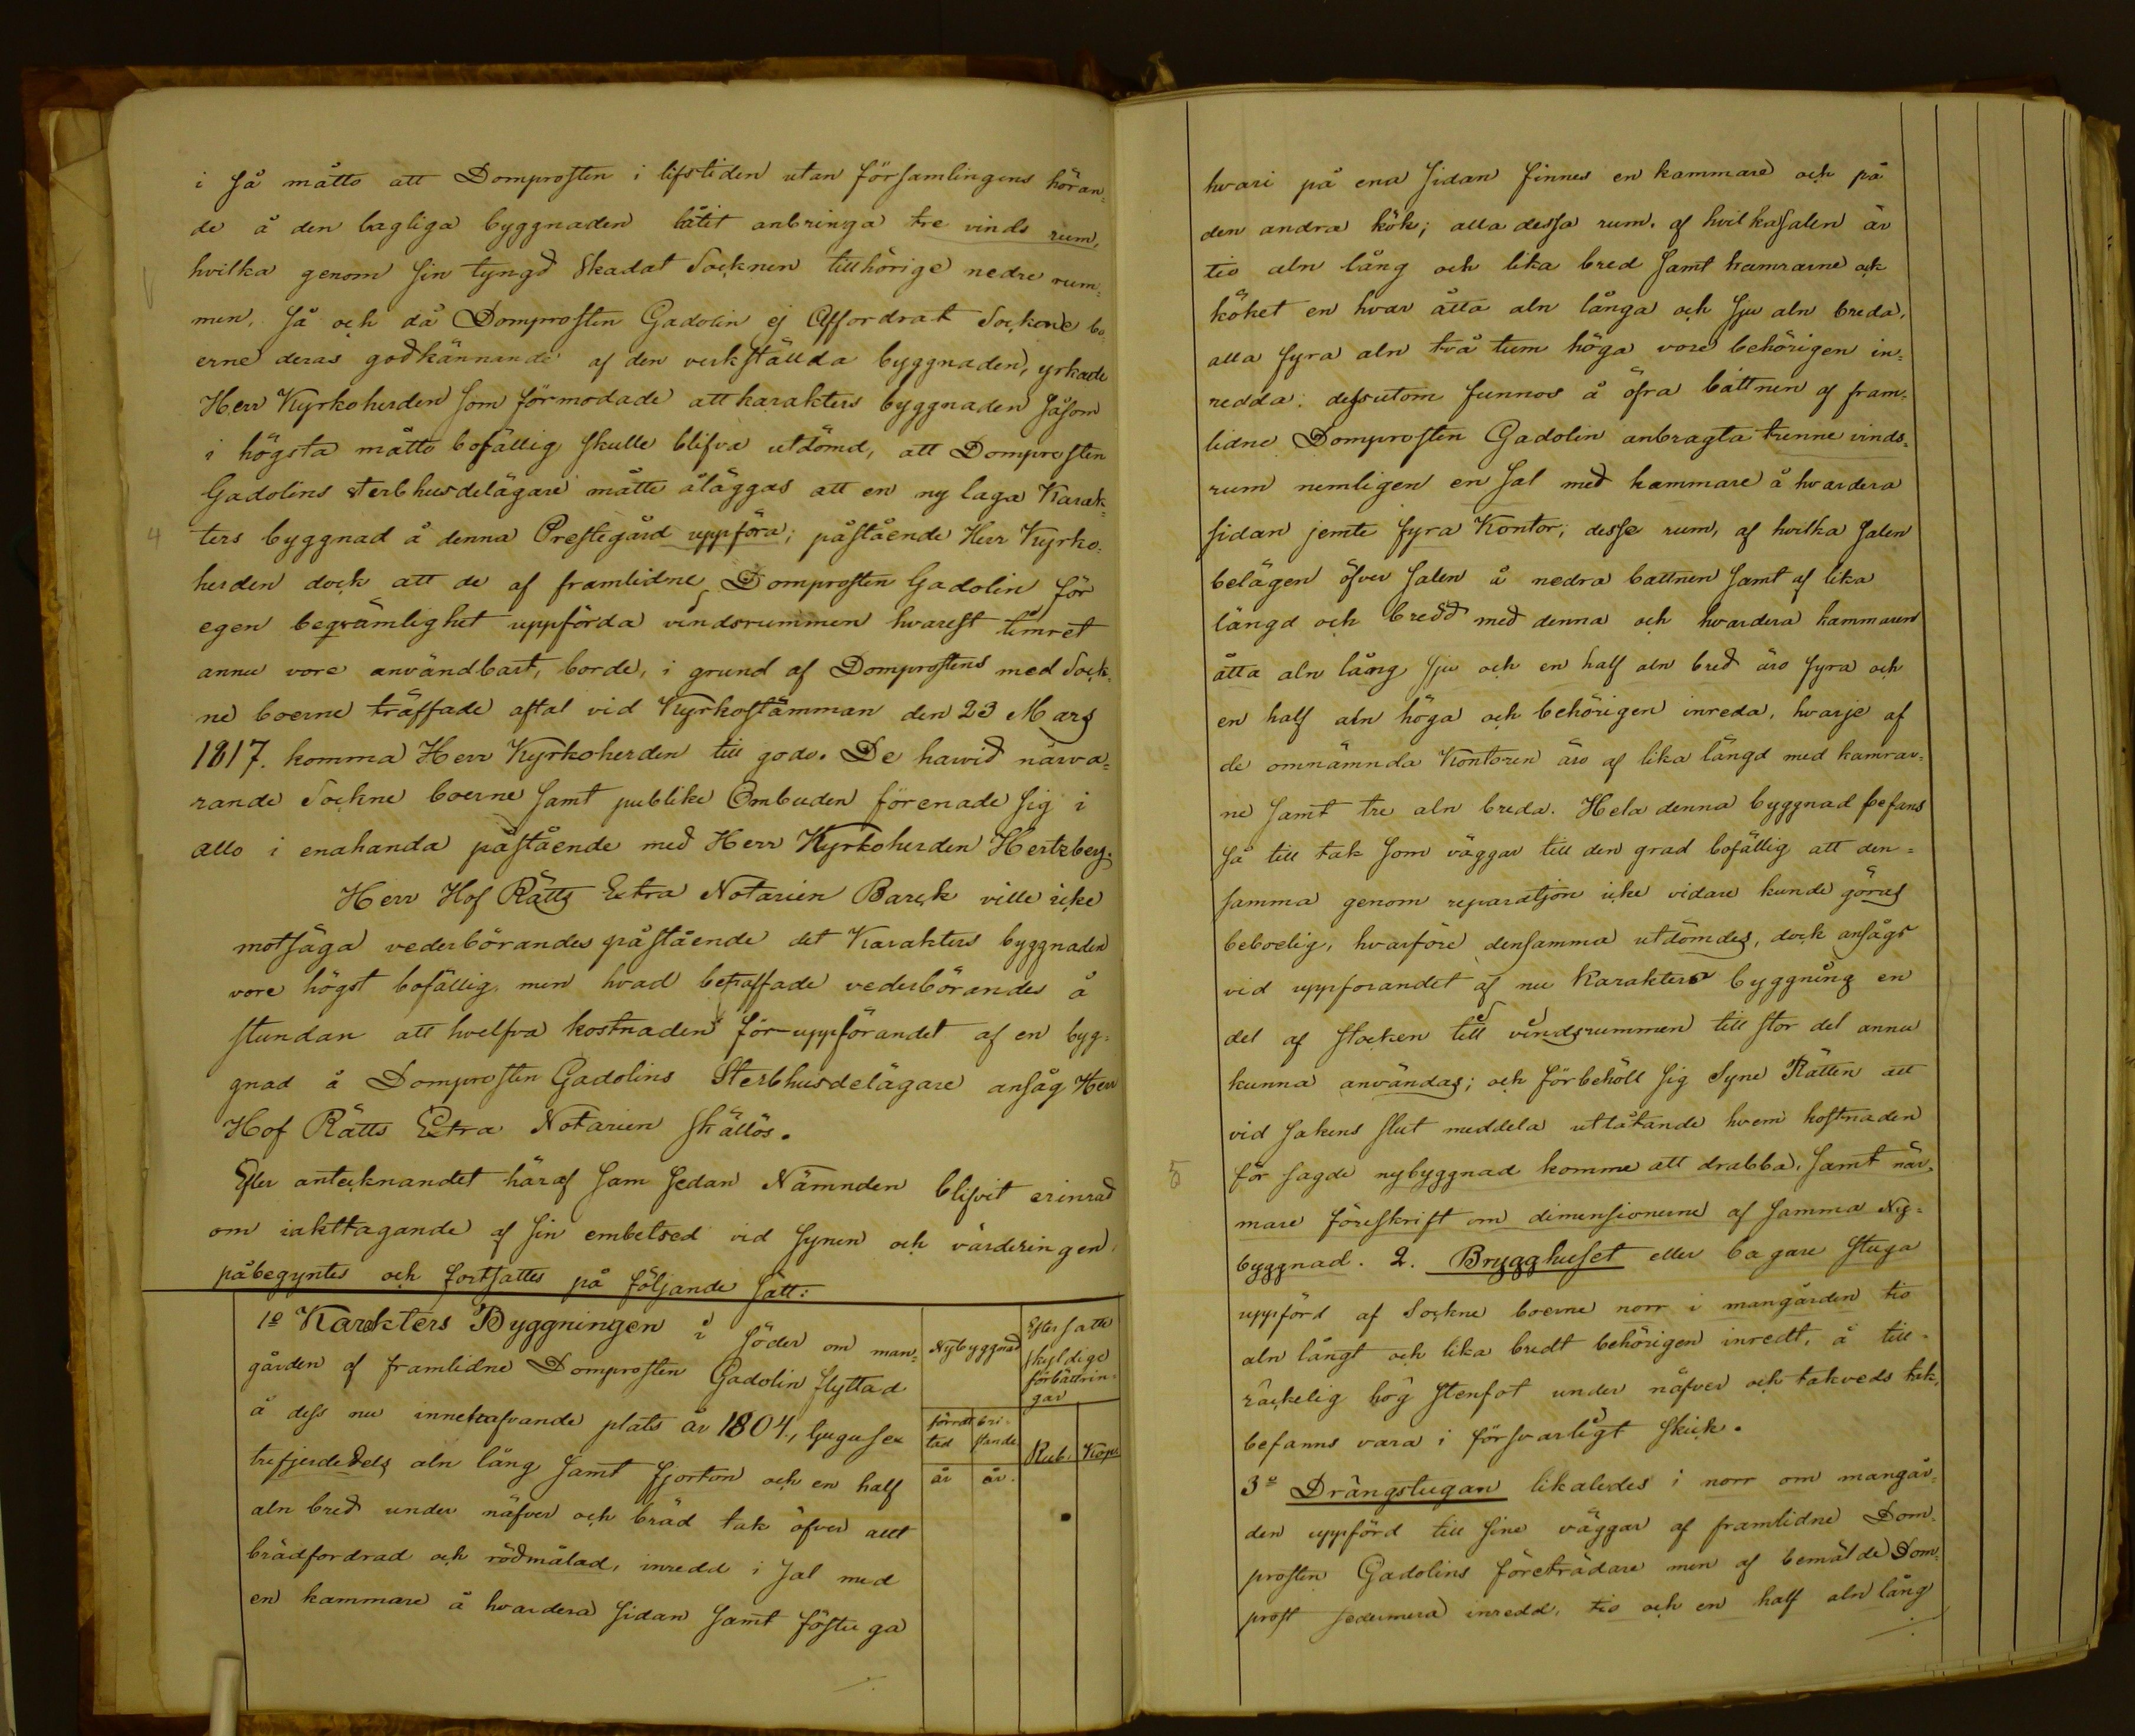 i så måtto att Domprosten i lifstiden utan församlingens höran=
de å den lagliga byggnaden låtit anbringa tre vinds rum,
hvilka genom sin tyngd skadat Socknen tillhörige nedre rum=
men, så och då Domprosten Gadolin ej affordrat Sockne bo
erne deras godkännande af den verkställda byggnaden, yrkade
Herr Kyrkoherden som förmodade att karakters byggnaden såsom
i högsta måtto bofällig skulle blifva utdömd, att Domprosten
Gadolins sterbhusdelägare måtte åläggas att en ny laga Karak=
4 ters byggnad å denna Prestegård uppföra; påstående Herr Kyrko=
herden dock att de af framlidne Domprosten Gadolin för
egen beqvämlighet uppförda vindsrummen hvarest timret
annu vore användbart, borde, i grund af Domprostens med Sock=
ne boerne träffade aftal vid Kyrkostämman den 23 Mars
1817. komma Herr Kyrkoherden till godo. De harvid närva=
rande Sockne boerne samt publike Ombuden förenade sig i
allo i enahanda påstående med Herr Kyrkoherden Hertzberg;
Herr Hof Rätts Extra Notarien Barck ville icke
motsäga vederbörandes påstående det Karakters byggnaden
vore högst bofällig, men hvad beträffade vederbörandes å
stundan att hvelfva kostnaden för uppförandet af en byg=
gnad å Domprosten Gadolins Sterbhusdelägare ansåg Herr
Hof Rätts Extra Notarien skällös.
Efter antecknandet häraf sam sedan Nämnden blifvit erinrad
om iakttagande af sin embetsed vid synen och värderingen,
påbegyntes och fortsattes på följande sätt:
1o Karakters Byggningen i söder om man=
gården af framlidne Domprosten Gadolin flyttad
å dess nu innehafvande plats år 1804, tjugusex
trefjerdedels aln lång samt fjorton och en half
aln bred under näfver och bräd tak öfver allt
brädfordrad och rödmålad, inredd i sal med
en kammare å hvardera sidan samt föstuga
Nybyggnad
Eftersatte
skyldige
förbättrin=
gar
förrät
tad
bri=
stande
Rub.
Kop.
år
år.
hvari på ena sidan finnes en kammare och på
den andra kök; alla dessa rum, af hvilka salen är
tio aln lång och lika bred samt kamrarne och
köket en hvar åtta aln långa och sju aln breda,
alla fyra aln två tum höga vore behörigen in=
redda; dessutom funnos å öfra båttnen af fram=
lidne Domprosten Gadolin anbragta trenne vinds=
rum nemligen en sal med kammare å hvardera
sidan jemte fyra Kontor; desse rum, af hvilka salen
belägen öfver salen å nedra battnen samt af lika
längd och bredd med denna och hvardera kammaren
åtta aln lång sju och en half aln bred äro fyra och
en half aln höga och behörigen inreda, hvarje af
de omnämnda Kontoren äro af lika längd med kamrar=
ne samt tre aln breda. Hela denna byggnad befans
så till tak som väggar till den grad bofällig att den=
samma genom reparatjon icke vidare kunde göras
beboelig, hvarföre densamma utdömdes, dock ansågs
vid uppförandet af nu karakters byggning en
del af stocken till vindsrummen till stor del annu
kunna användas; och förbehöll sig Syne Rätten att
vid sakens slut meddela utlåtande hvem kostnaden
5 för sagde nybyggnad komme att drabba, samt när=
mare föreskrift om dimensionerne af samma Ny=
byggnad. 2. Brygghuset eller bagare stuga
uppförd af Sockne boerne norr i mangården tio
aln långt och lika bredt behörigen inredt, å till=
räckelig hög stenfot under näfver och takveds tak,
befanns vara i försvarligt skick.
3o Drängstugan likaledes i norr om mangår=
den uppförd till sine väggar af framlidne Dom=
prosten Gadolins företrädare men af bemälde Dom=
prost sedermera inredd, tio och en half aln lång